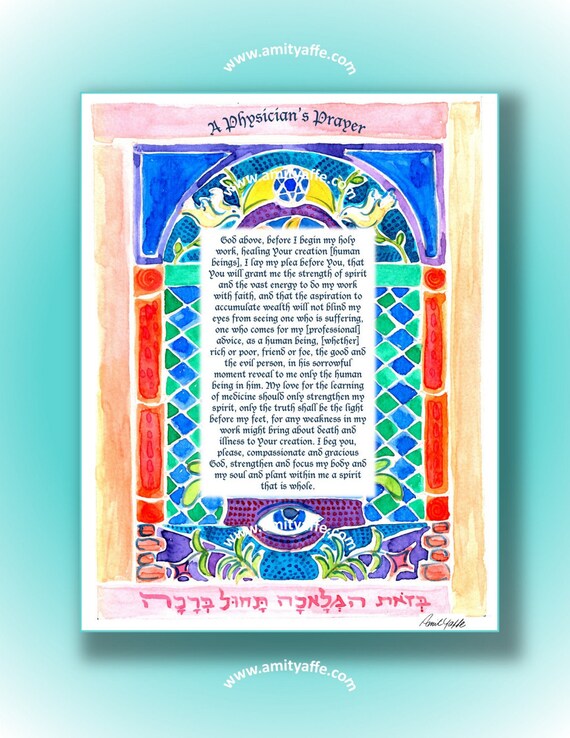 www.amityaffe.com
A Physician's Prayer
www.amityaffe.com
God above, before I begin my holy
work, healing Your creation [human
beings], I lay my plea before You, that
You will grant me the strength of spirit
and the vast energy to do my work
with faith, and that the aspiration to
accumulate wealth will not blind my
eyes from seeing one who is suffering,
one who comes for my [professional]
advice, as a human being, [whether]
rich or poor, friend or foe, the good and
the evil person, in his sorrowful
moment reveal to me only the human
being in him. My love for the learning
of medicine should only strengthen my
spirit, only the truth shall be the light
before my feet, for any weakness in my
work might bring about death and
illness to Your creation. I beg you,
please, compassionate and gracious
God, strengthen and focus my body and
my soul and plant within me a spirit
that is whole.
www.amityaffe.com
בְּזֹאת הַמְּלָאכָה תָּחוּל בְּרָכָה
Amit Yaffe
www.amityaffe.com